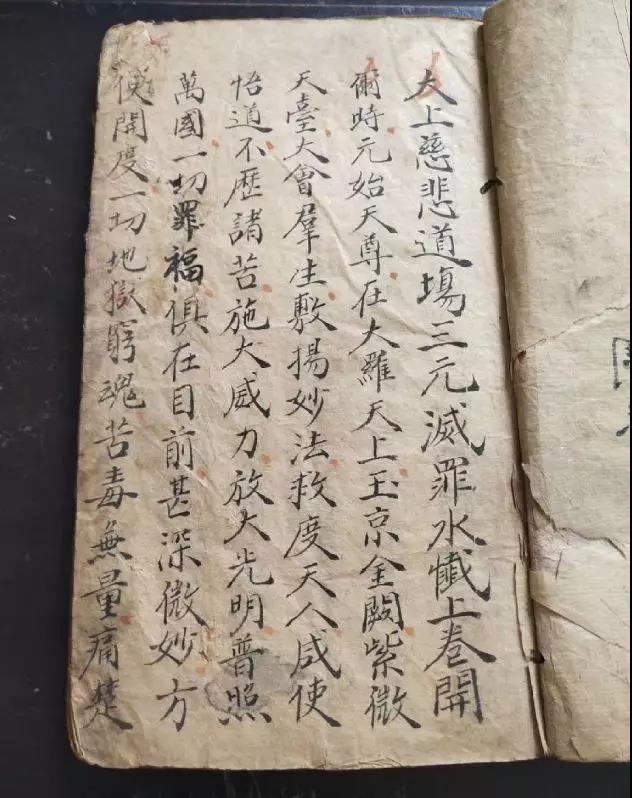 太上慈悲道場三元滅罪水懺上卷開
爾時元始天尊在大羅天上玉京金闕紫微
天臺大會羣生敷揚妙法救度天人咸使
悟道不歷諸苦施大威力放大光明普照
萬國一切罪福俱在目前甚深微妙方
便開度一切地獄窮魂苦毒無量痛楚